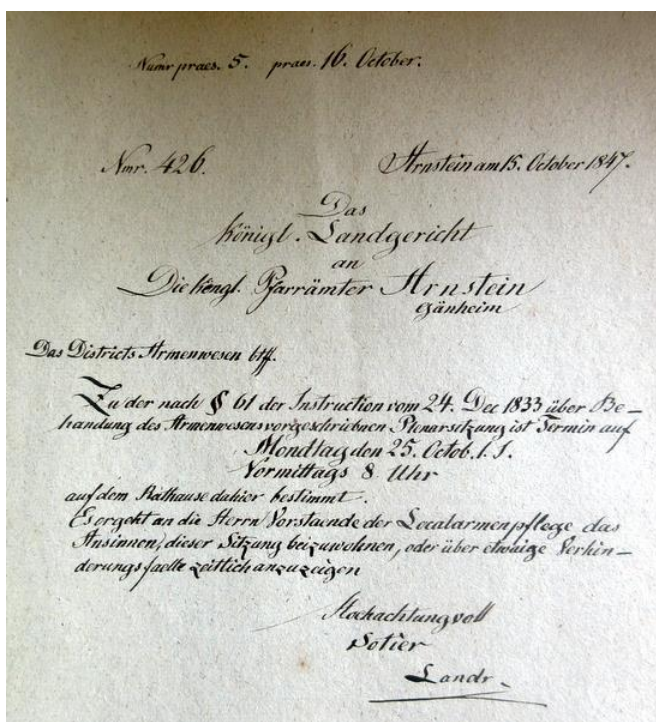 Numr praes. 5. praes. 16. October.
Nmr. 426.
Arnstein am 15. October 1847.
Das
königl. Landgericht
an
Die köngl. Pfarrämter Arnstein
Gänheim
Das Districts Armenwesen btff.
Zu der nach § 61 der Instruction vom 24. Dec 1833 über Be-
handung des Armenwesens vorgeschriebnen Plenarsitzung ist Termin auf
Mondtag den 25. Octob. l. J.
Vormittags 8 Uhr
auf dem Rathause dahier bestimmt.
Es ergeht an die Herrn Vorstaende der Localarmenpflege das
Ansinnen, dieser Sitzung beizuwohnen, oder über etwaige Verhin-
derungsfaelle zeitlich anzuzeigen
Hochachtungvoll
Sotier
Landr.